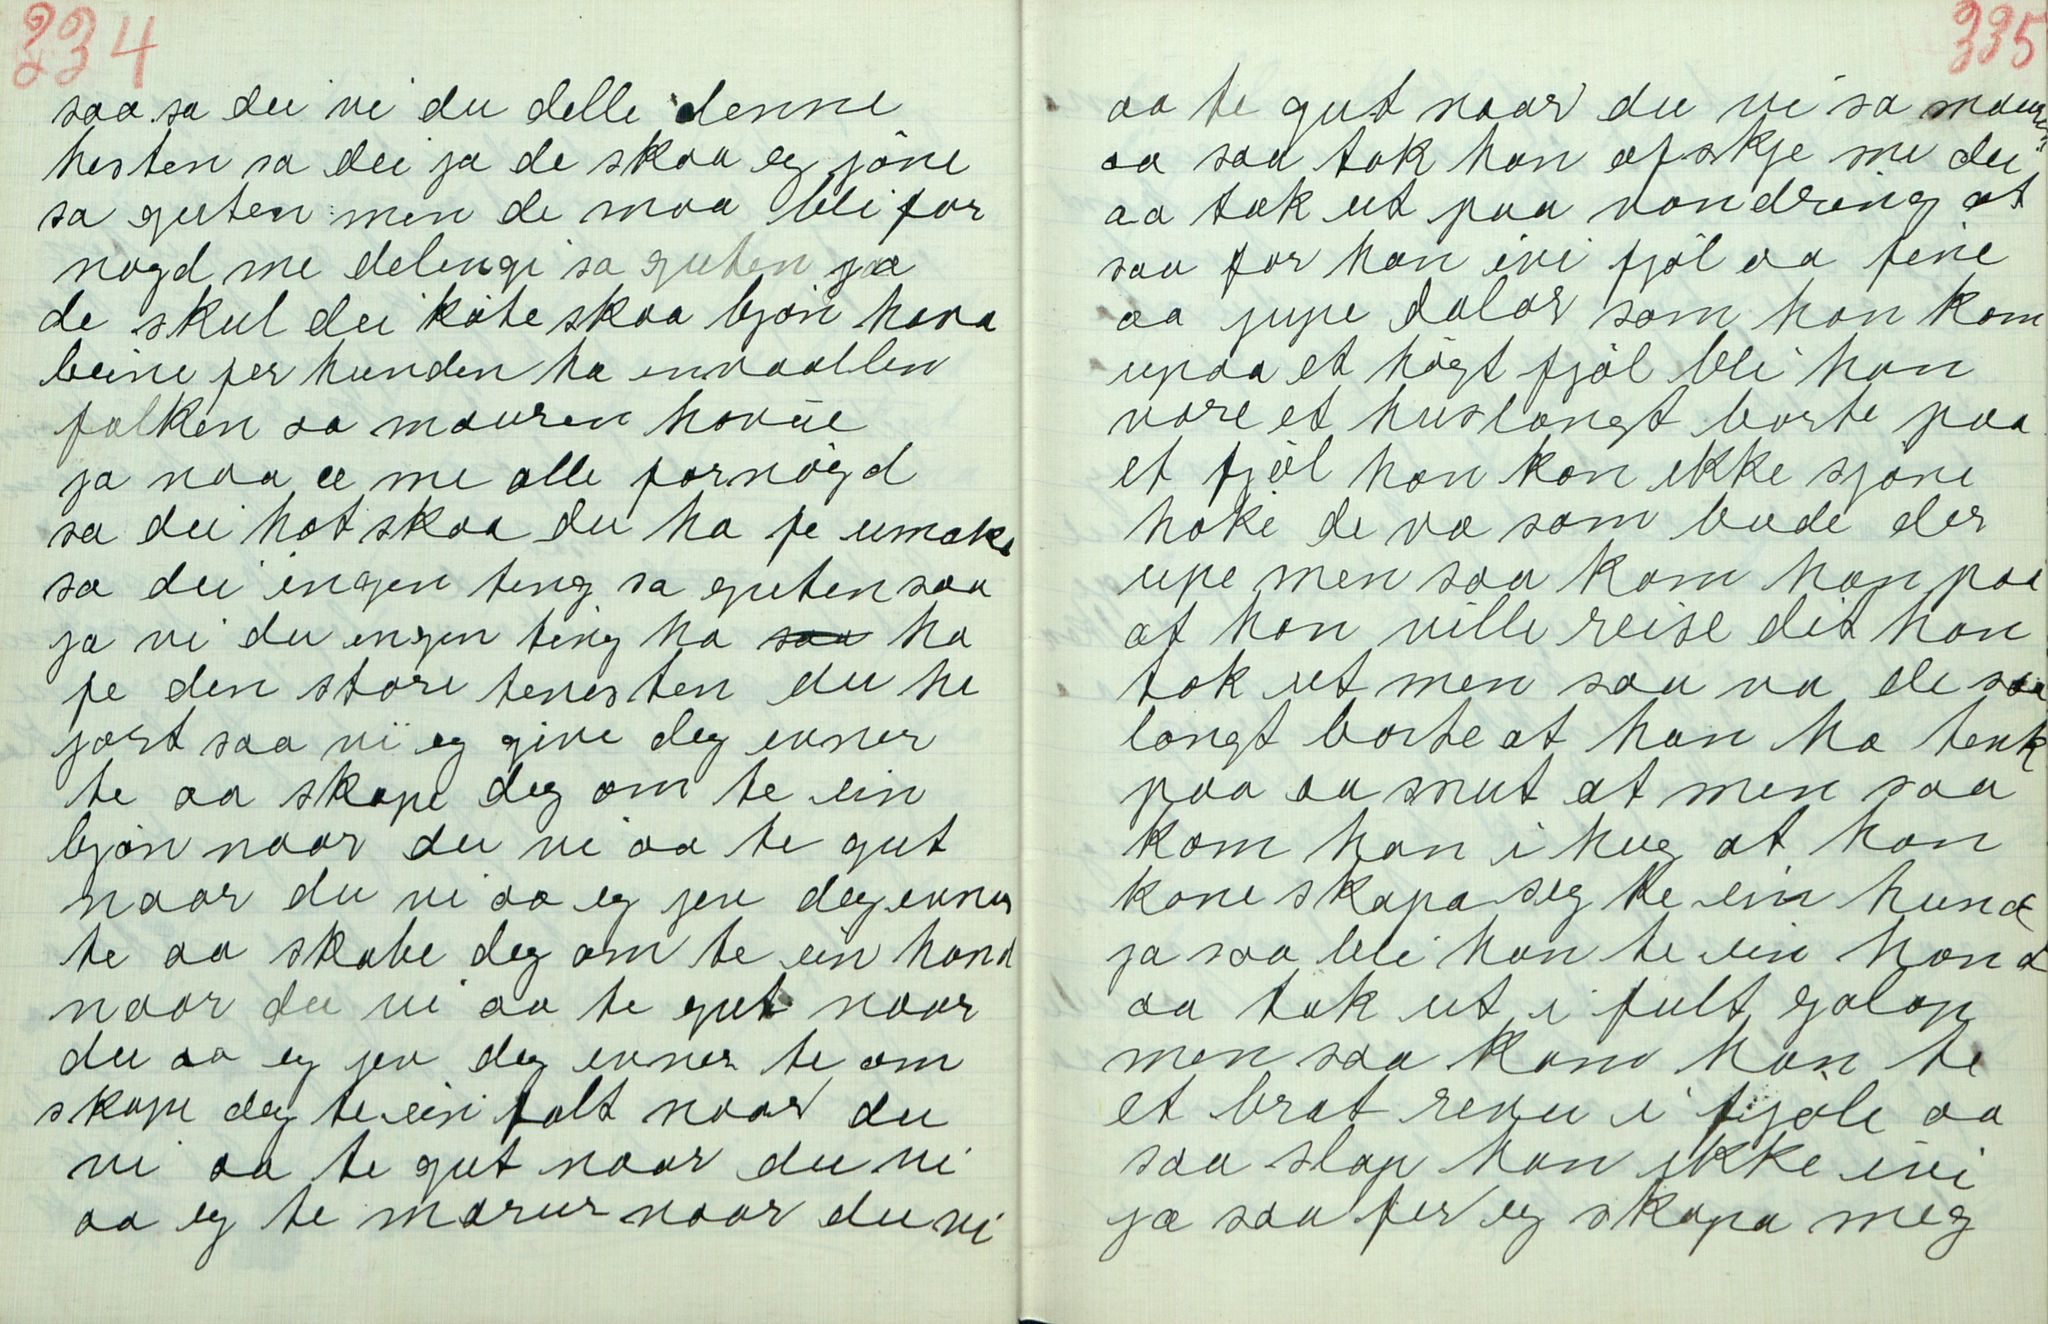 334
saa sa dei vi du delle denne
hesten sa dei ja de skaa eg jöne
sa guten men de maa bli for
nögd me delingi sa guten ja
de skul dei köte skaa bjön hava
beine fer hunden ha innvollen
falken aa mauren hovüe
ja naa æ me alle fornögd
sa dei hot skaa du ha fe umake
sa dei ingen ting sa guten saa
ja vi du ingen ting ha ha
fe den störe tenesten du he
jort saa vi eg give deg evner
te aa skape deg om te ein
bjön naar du vi aa te gut
naar du vi aa eg jev deg evner
te aa skabe deg om te ein hond
naar du vi aa te gut naar
du aa eg jev deg evner te om
skape deg te ein falt naar du
vi aa te gut naar du vi
aa eg te maurur naar du vi
335
aa te gut naar du vi sa mauren
aa saa tok han afskje me dei
aa tok ut paa vandring at
saa for han ivi fjöl aa fine
aa jupe dalar som han kom
upaa et högt fjöl bli han
vare et hus langt borte paa
et fjöl han kan ikke sjöne
hoke de va som bude der
upe men saa kom han paa
at han ville reise dit han
tok ut men saa va de saa
langt borte at han ha tenk
paa aa snut at men saa
kom han i hug at han
kone skapa seg te ein hund
ja saa bli han te ein hond
aa tok ut i fult galop
men saa kom han te
et brat revu i fjöle aa
saa slap han ikke ivi
ja saa fer eg skapa meg